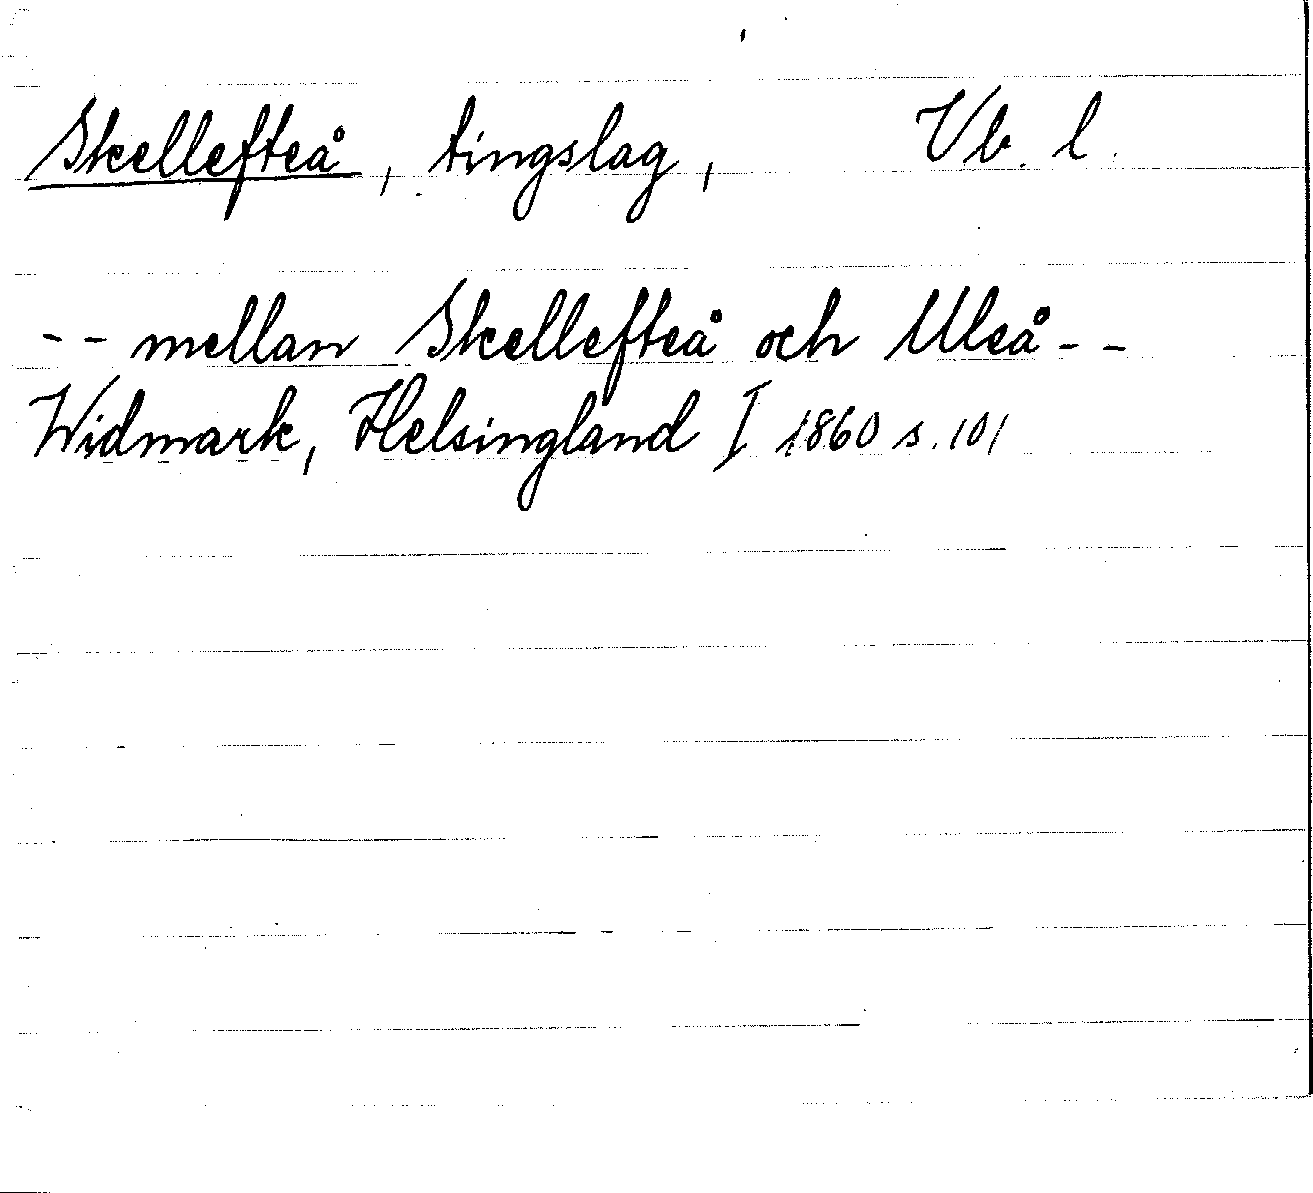 Skellefteå, tingslag, Vb. l.
-- mellan Skellefteå och Uleå --
Widmark, Helsingland I 1860 s. 101